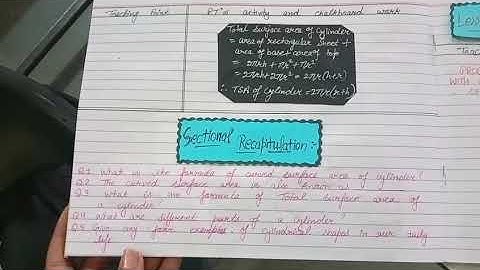 Teaching Point
P.T's activity and chalkboard work
Total surface area of cylinder
= area of rectangular sheet +
area of base + area of top
= 2πrh + πr² + πr²
= 2πrh + 2πr² = 2πr(h+r)
∴ TSA of cylinder = 2πr(r+h)
Sectional Recapitulation :-
Q.1 What is the formula of curved surface area of cylinder?
Q.2 The curved surface area is also known as
Q.3 What is the formula of Total surface area of
a cylinder?
Q.4 What are different parts of a cylinder?
Q.5 Give any four examples of cylindrical shapes in our daily
life
WITH